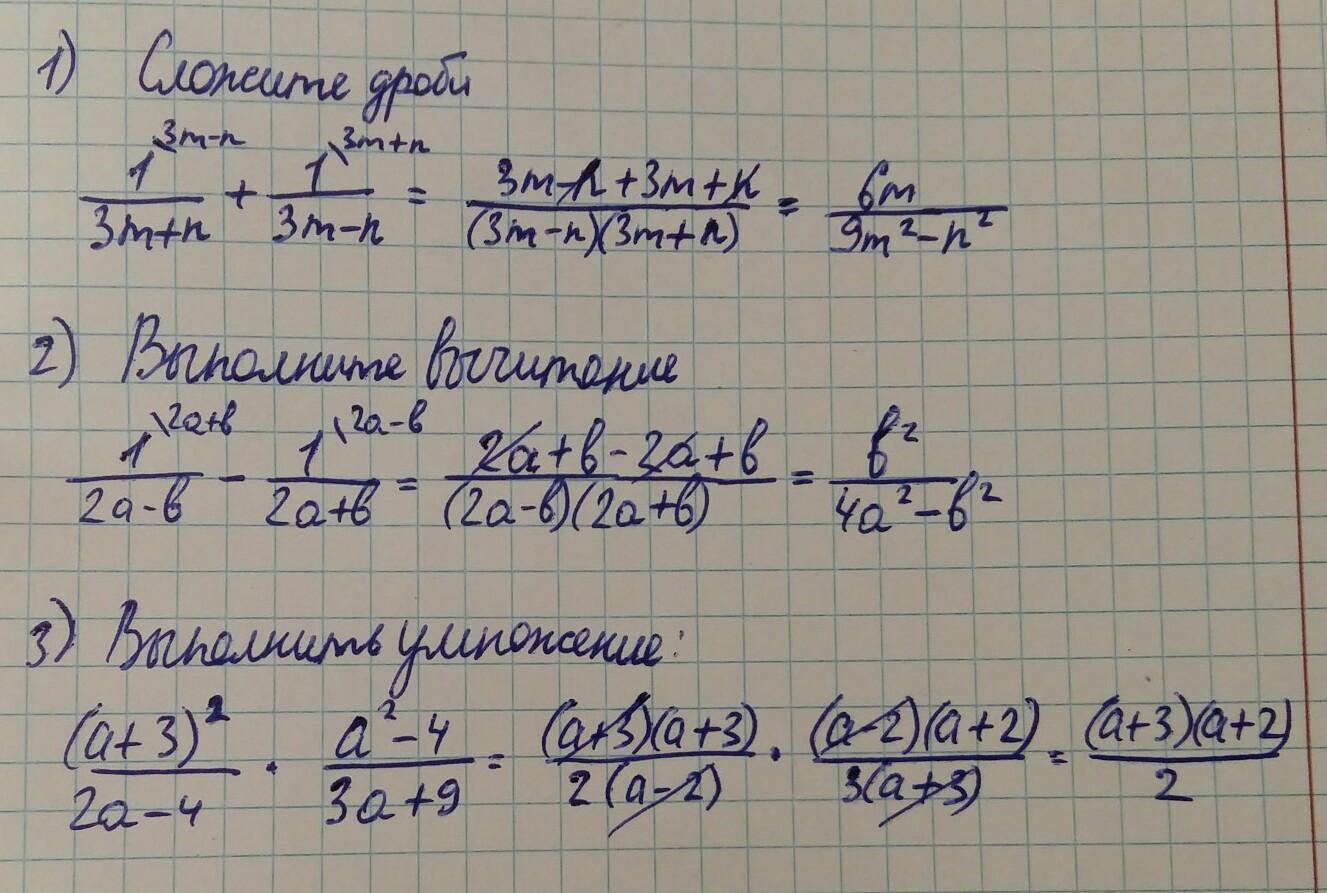 1) Сложите дроби
1\3m-n/3m+n + 1\3m+n/3m-n = 3m-n+3m+n/(3m-n)(3m+n) = 6m/9m²-n²
2) Выполните вычитание
1\2a+b/2a-b - 1\2a-b/2a+b = 2a+b-2a+b/(2a-b)(2a+b) = b²/4a²-b²
3) Выполнить умножение:
(a+3)²/2a-4 · a²-4/3a+9 = (a+3)(a+3)/2(a-2) · (a-2)(a+2)/3(a+3) = (a+3)(a+2)/2